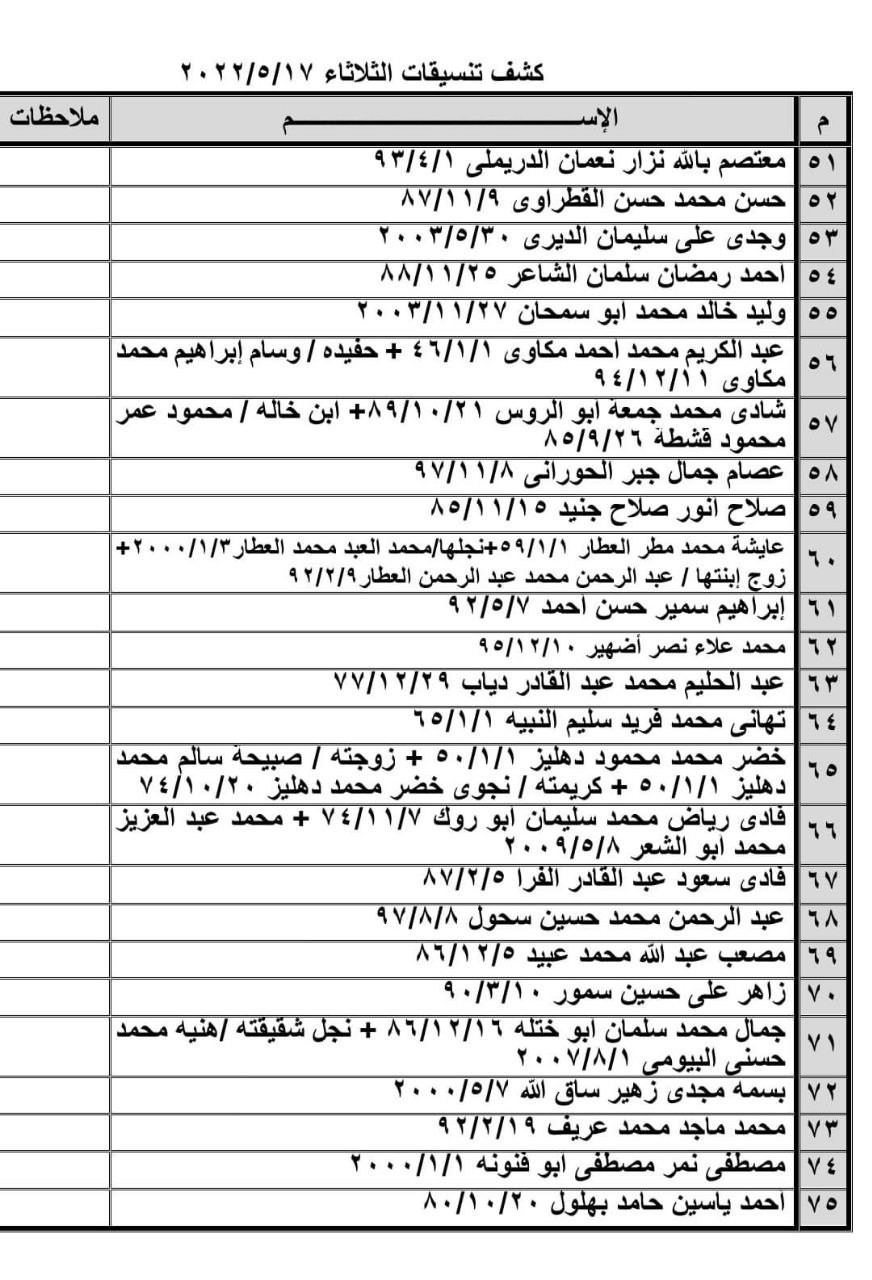 كشف تنسيقات الثلاثاء ٢٠٢٢/٥/١٧
م الإســـــــــــــم ملاحظات
٥١ معتصم بالله نزار نعمان الدريملى ٩٣/٤/١
٥٢ حسن محمد حسن القطراوى ٨٧/١١/٩
٥٣ وجدى على سليمان الديرى ٢٠٠٣/٥/٣٠
٥٤ احمد رمضان سلمان الشاعر ٨٨/١١/٢٥
٥٥ وليد خالد محمد ابو سمحان ٢٠٠٣/١١/٢٧
٥٦ عبد الكريم محمد احمد مكاوى ٤٦/١/١ + حفيده / وسام إبراهيم محمد
مكاوى ٩٤/١٢/١١
٥٧ شادى محمد جمعة ابو الروس ٨٩/١٠/٢١+ ابن خاله / محمود عمر
محمود قشطة ٨٥/٩/٢٦
٥٨ عصام جمال جبر الحورانى ٩٧/١١/٨
٥٩ صلاح انور صلاح جنيد ٨٥/١١/١٥
٦٠ عايشة محمد مطر العطار ٥٩/١/١+نجلها/محمد العبد محمد العطار٢٠٠٠/١/٣+
زوج إبنتها / عبد الرحمن محمد عبد الرحمن العطار٩٢/٢/٩
٦١ إبراهيم سمير حسن احمد ٩٢/٥/٧
٦٢ محمد علاء نصر أضهير ٩٥/١٢/١٠
٦٣ عبد الحليم محمد عبد القادر دياب ٧٧/١٢/٢٩
٦٤ تهانى محمد فريد سليم النبيه ٦٥/١/١
٦٥ خضر محمد محمود دهليز ٥٠/١/١ + زوجته / صبيحة سالم محمد
دهليز ٥٠/١/١ + كريمته / نجوى خضر محمد دهليز ٧٤/١٠/٢٠
٦٦ فادى رياض محمد سليمان ابو روك ٧٤/١١/٧ + محمد عبد العزيز
محمد ابو الشعر ٢٠٠٩/٥/٨
٦٧ فادى سعود عبد القادر الفرا ٨٧/٢/٥
٦٨ عبد الرحمن محمد حسين سحول ٩٧/٨/٨
٦٩ مصعب عبد الله محمد عبيد ٨٦/١٢/٥
٧٠ زاهر على حسين سمور ٩٠/٣/١٠
٧١ جمال محمد سلمان ابو ختله ٨٦/١٢/١٦ + نجل شقيقته /هنيه محمد
حسنى البيومى ٢٠٠٧/٨/١
٧٢ بسمه مجدى زهير ساق الله ٢٠٠٠/٥/٧
٧٣ محمد ماجد محمد عريف ٩٢/٢/١٩
٧٤ مصطفى نمر مصطفى ابو فنونه ٢٠٠٠/١/١
٧٥ احمد ياسين حامد بهلول ٨٠/١٠/٢٠